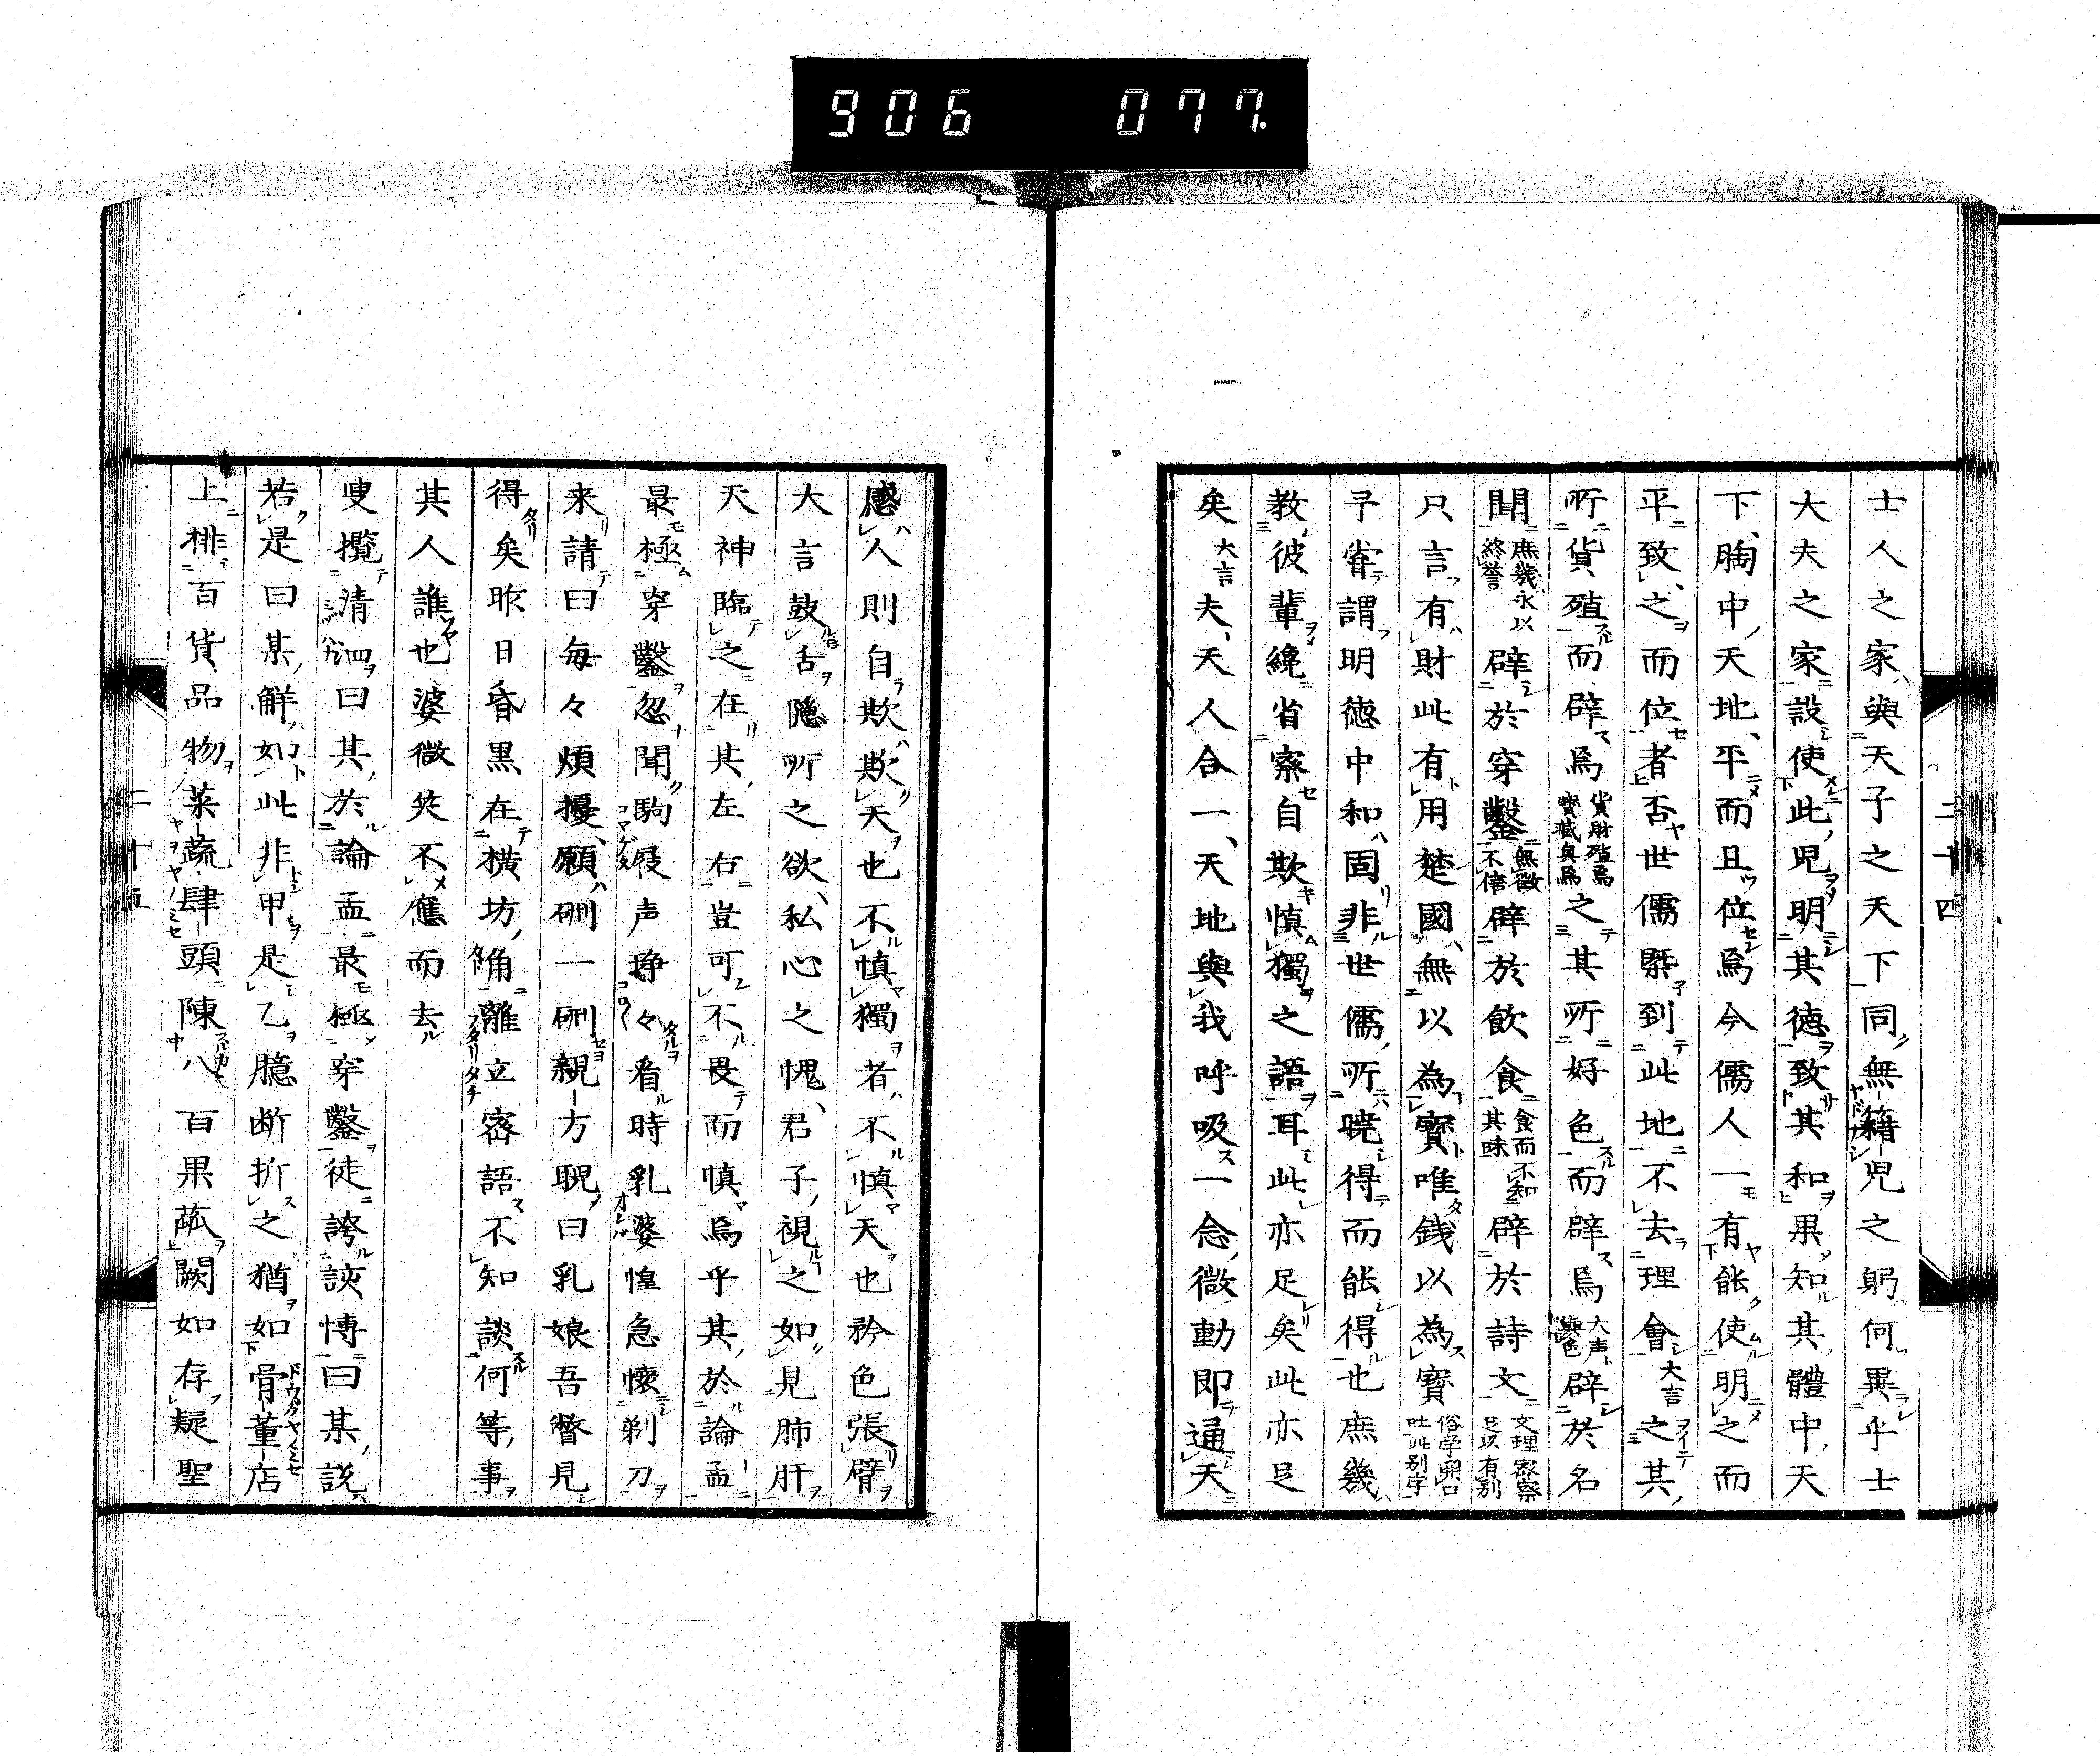 906 077.
二十四
士人之家與天子之天下同無籍児之躬何異乎士
大夫之家設使此児明其徳致其和果知其體中天
下胸中天地平而且位焉今儒人一有能使明之而
平致之而位者否世儒曁到此地不去理會大言之其
所貨殖而辟焉貨財殖焉寳藏與焉之其所好色而辟焉大声與色辟於名
聞庶幾永以終誉辟於穿鑿無徴不信辟於飲食食而不知其味辟於詩文文理密察足以有別
只言有財此有用楚國無以為寳唯銭以為寳俗学開口吐此別字
予甞謂明徳中和固非世儒所曉得而能得也庶幾
教彼輩纔省察自欺慎獨之語耳此亦足矣此亦足
矣大言夫天人合一天地與我呼吸一念微動即通天
感人則自欺欺天也不慎獨者不慎天也矜色張臂
大言鼓舌隠所之欲私心之愧君子視之如見肺肝
天神臨之在其左右豈可不畏而慎焉乎其於論孟
最極穿鑿忽聞駒屐声琤々看時乳婆惶急懐剃刀
来請曰毎々煩擾願硎一硎親方聡曰乳娘吾瞥見
得矣昨日昏黒在横坊角離立密語不知談何等事
其人誰也婆微笑不應而去
叟攬清泗曰其於論孟最極穿鑿徒誇該博曰某説
若是曰某鮮如此非甲是乙臆断折之猶如骨董店
上排百貨品物菜蔬肆頭陳八百果蓏闕如存疑聖
二十五